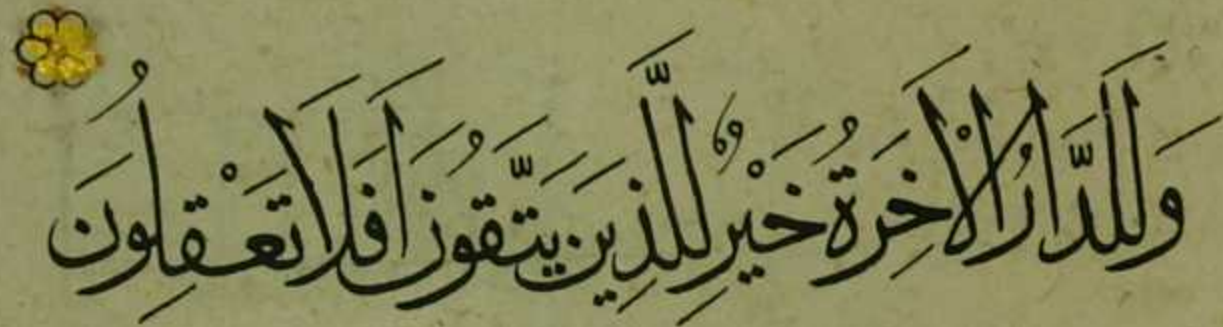 وَلَلدَّارُ الْاٰخِرَةُ خَيْرٌ لِلَّذِينَ يَتَّقُونَ اَفَلَا تَعْقِلُونَ